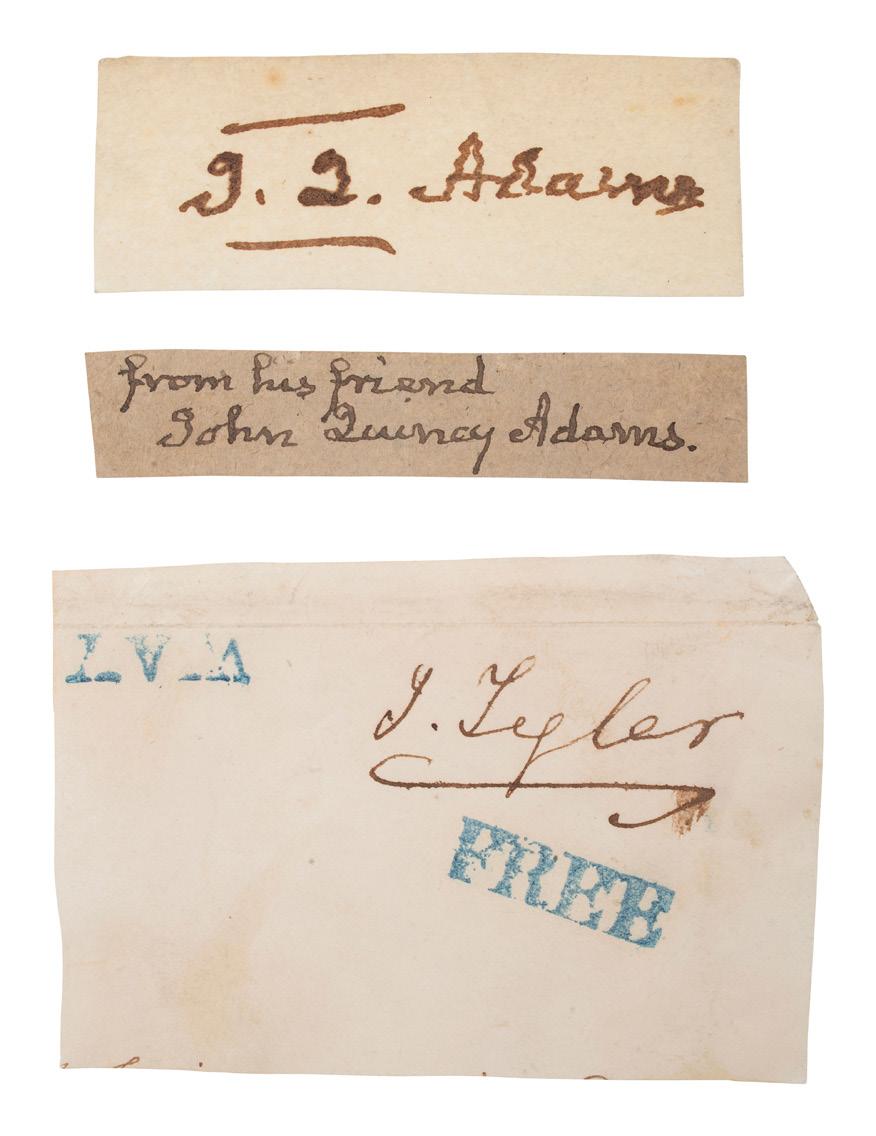 J. Q. Adams
from his friend
John Quincy Adams.
VA
J. Tyler
FREE